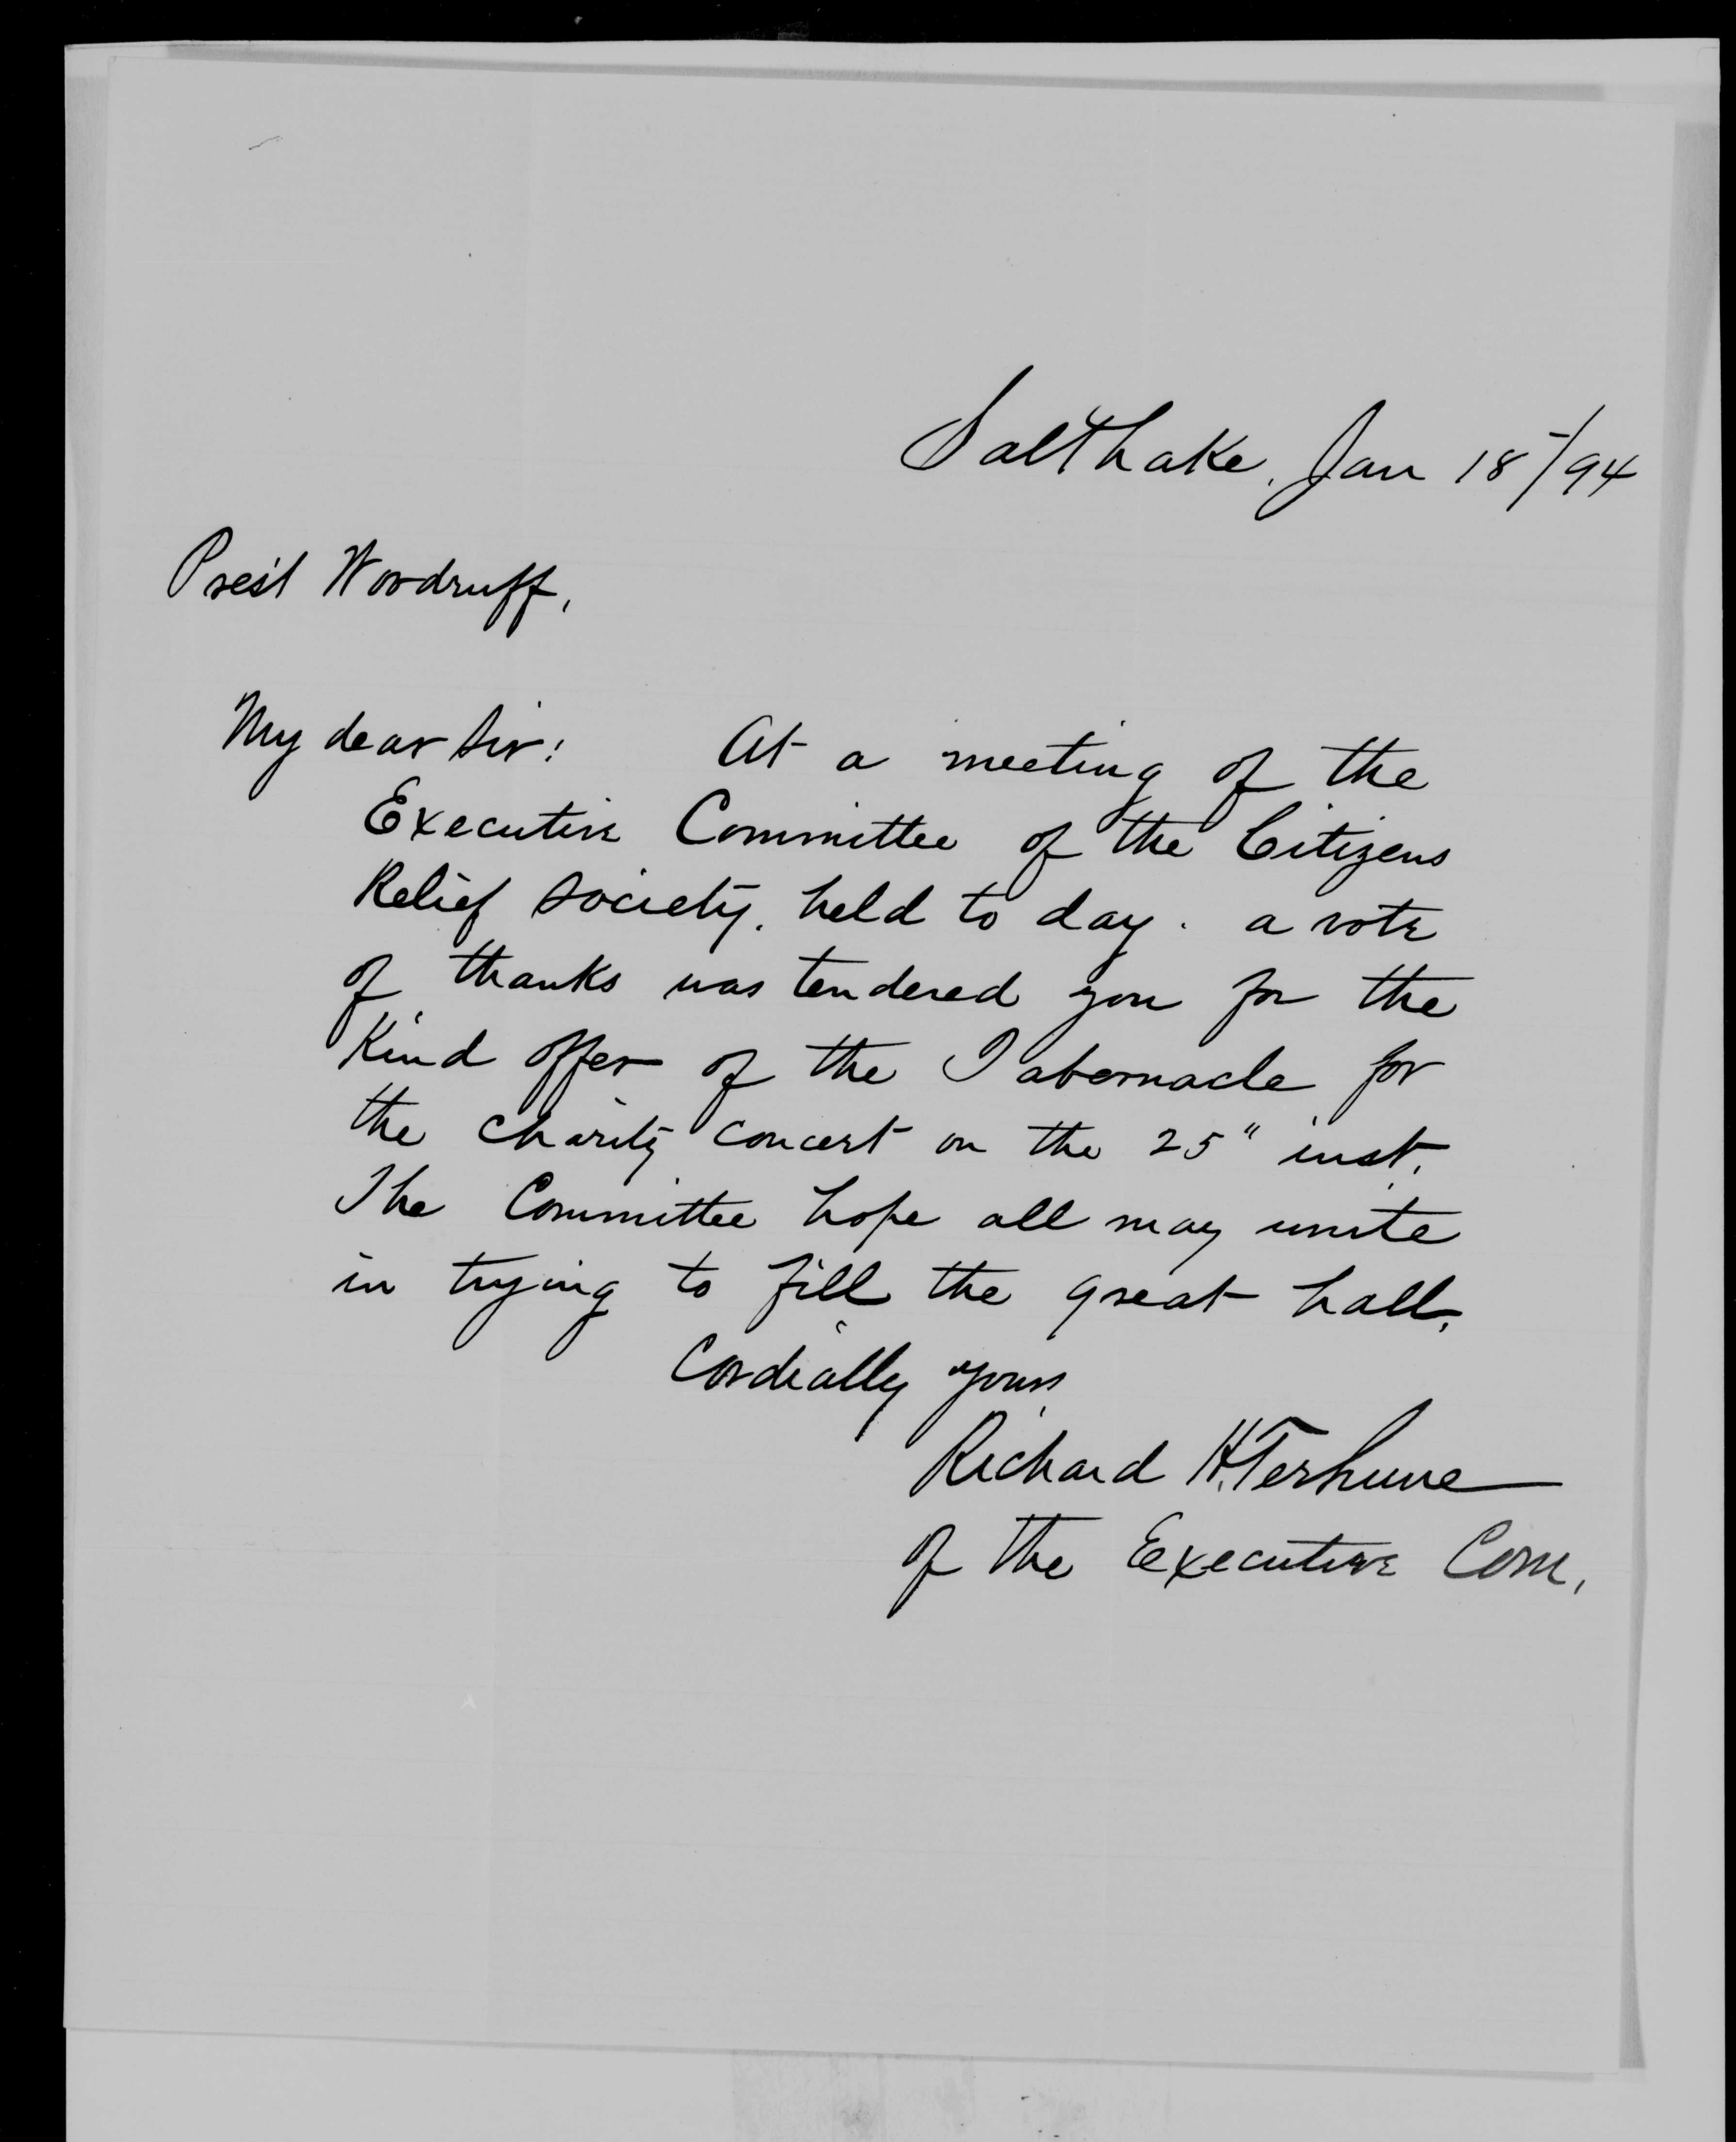 Salt Lake, Jan 18/94
Pres't Woodruff,
My dear Sir: At a meeting of the
Executive Committee of the Citizens
Relief Society, held to day. a vote
of thanks was tendered you for the
Kind offer of the Tabernacle for
the charity concert on the 25" inst.
The Committee hope all may unite
in trying to fill the great hall.
Cordially yours
Richard H. Terhune
of the Executive Com.